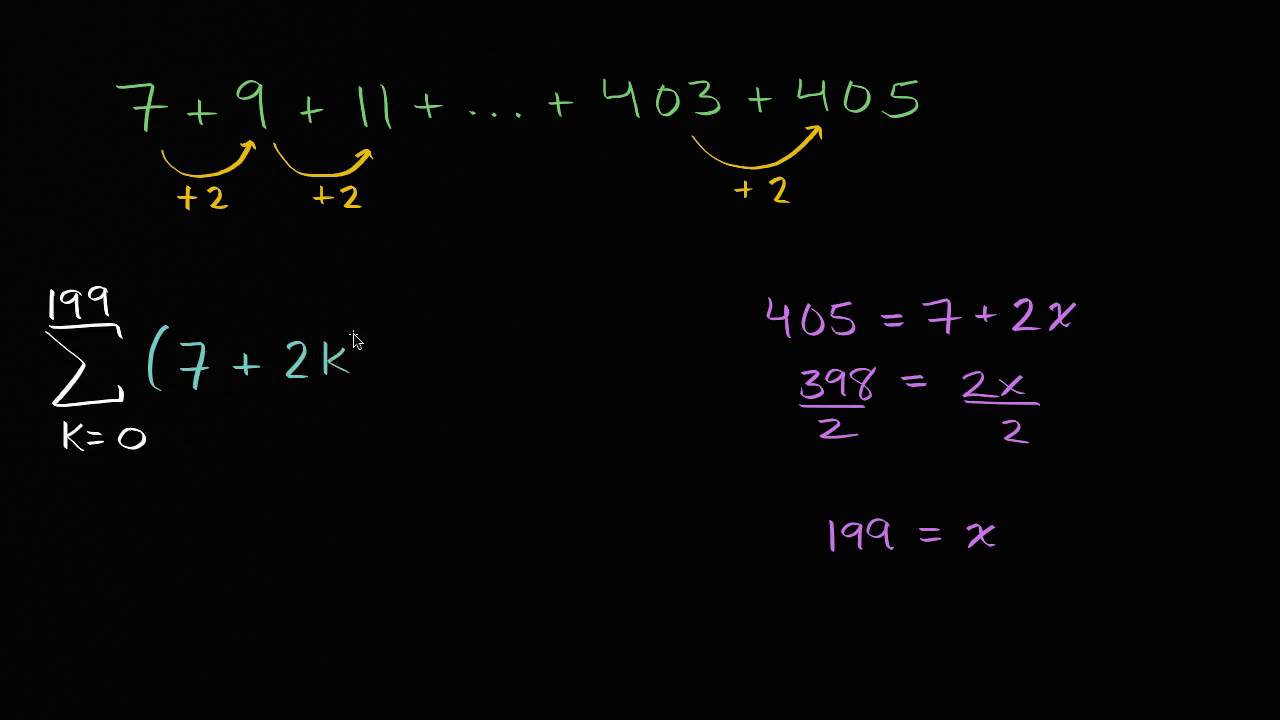 7 + 9 + 11 + ... + 403 + 405
+2 +2 + 2
199
∑ (7 + 2k
k=0
405 = 7 + 2x
398 = 2x
2 2
199 = x